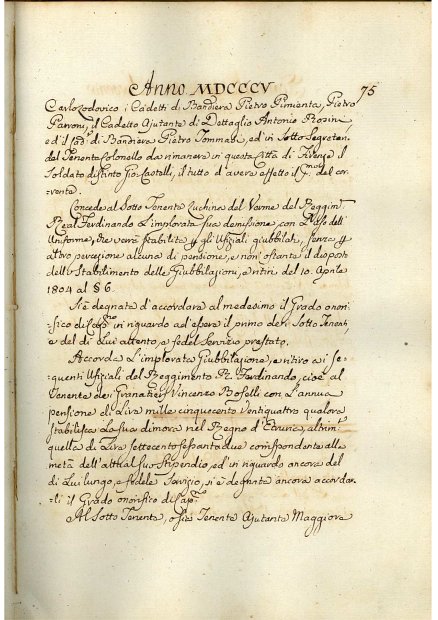 Anno MDCCCV
75
Carlo Lodovico i Cadetti di Bandiera Pietro Pimienta, Pietro
Parroni, il Cadetto Ajutante di Dettaglio Antonio Rosini
ed il di Bandiera Pietro Tommasi, ed in Sotto Segretari
del Tenente Colonello da rimanere in questa Città di Firenze il
Soldato distinto Gio: Castelli, il tutto d'avere effetto il del cor-
rente.
Concede al Sotto Tenente Luchino del Verme del Reggim.
Real Ferdinando l'implorata sua demissione con l'Uso dell'
Uniforme, che verrà stabilito p. gli Ufiziali giubbilati, senza p.
altro percezione alcuna di pensione, e non ostante il disposto
dello Stabilimento delle Giubbilazioni, e ritiri del 10. Aprile
1804 al § 6.
Si è degnata d'accordare al medesimo il Grado ono-
fico di in riguardo ad essere il primo dei Sotto Tenenti
e del di Lui attento, e fedel Servizio prestato.
Accorda l'implorata Giubbilazione, e ritiro ai se-
guenti Ufiziali del Reggimento R. Ferdinando, cioè al
Tenente de Granatieri Vincenzo Boselli con l'annua
pensione di Lire mille cinquecento Ventiquattro qualora
stabilisca la sua dimora nel Regno d'Etruria, altrim.
quella di Lire settecento sessanta due corrispondente alla
metà dell'attual suo Stipendio, ed in riguardo ancora del
di Lui lungo, e fedele Servizio, si è degnata ancora accordar-
li il Grado onorifico di Cap.
Al Sotto Tenente, o sia Tenente Ajutante Maggiore